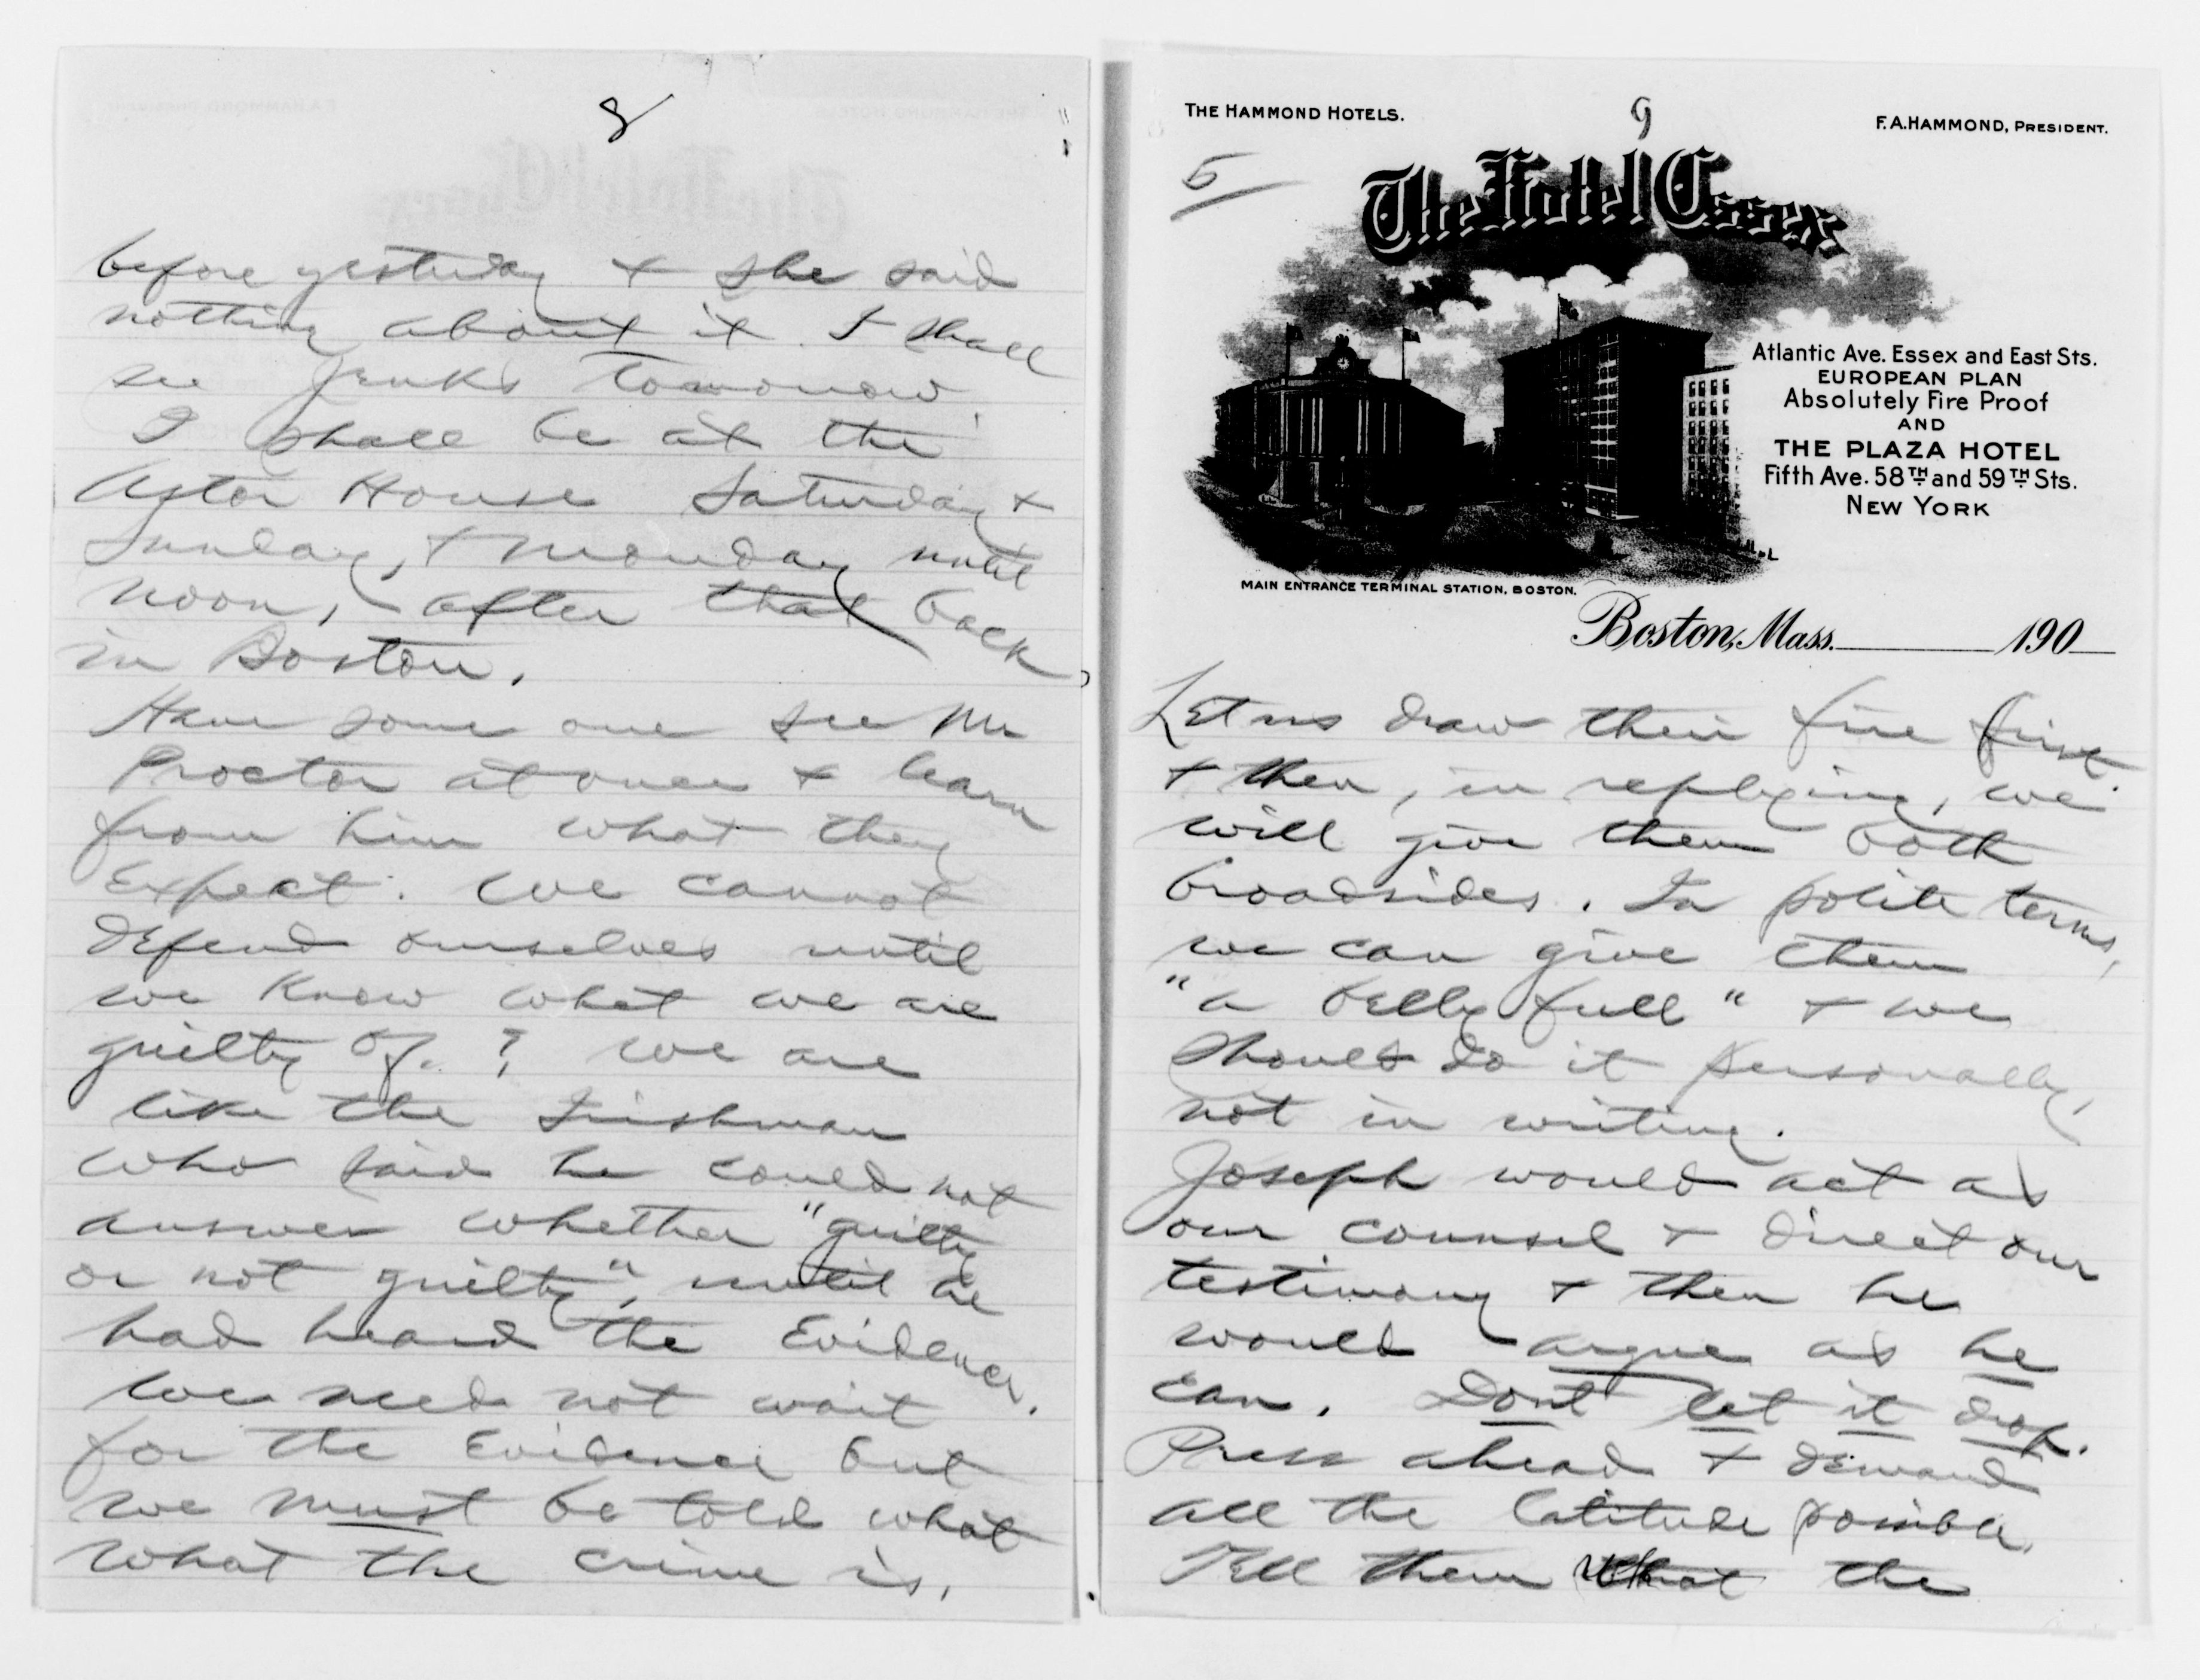 8
before yesterday & she said
nothing about it. I shall
see Jenks tomorrow.
I shall be at the
Astor House Saturday &
Sunday, & Monday until
noon, after that back
in Boston.
Have some one see Mr
Proctor at once & learn
from him what they
Expect. We cannot
defend ourselves until
we know what we are
guilty of. ? We are
like the Irishman
who said he could not
answer whether "guilty
or not guilty", until he
had heard the Evidence.
We need not wait
for the Evidence but
we must be told what
what the crime is.
THE HAMMOND HOTELS.
9
F. A. HAMMOND, PRESIDENT.
5
The Hotel Essex
Atlantic Ave. Essex and East Sts.
EUROPEAN PLAN
Absolutely Fire Proof
AND
THE PLAZA HOTEL
Fifth Ave. 58TH and 59TH Sts.
NEW YORK
MAIN ENTRANCE TERMINAL STATION, BOSTON.
Boston, Mass. 190
Let us draw their fire first
& then, in replying, we
will give them both
broadsides. In polite terms,
we can give them
"a belly full" & we
should do it personally,
not in writing.
Joseph would act as
our counsel & direct our
testimony & then he
would argue as he
can. Dont let it drop.
Press ahead & demand
all the latitude possible.
Tell them what the